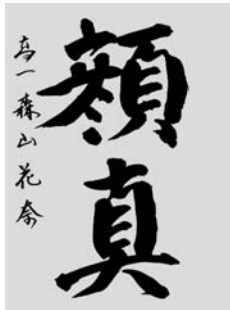 顔真
高一 森山花奈